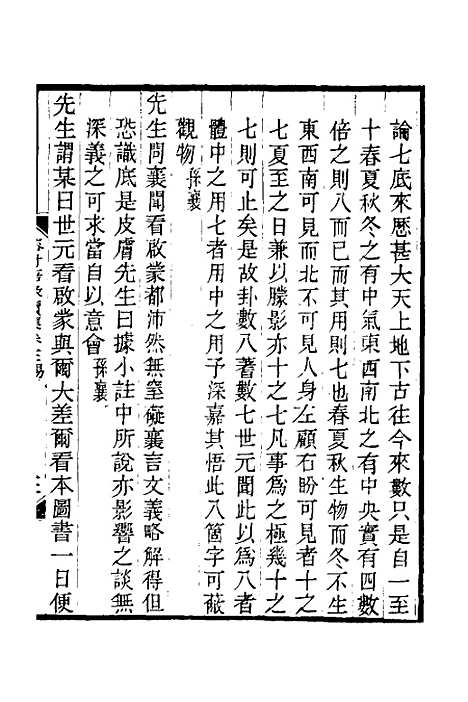 論七底來歷甚大天上地下古往今來數只是自一至
十春夏秋冬之有中氣東西南北之有中央實有四數
倍之則八而已而其用則七也春夏秋生物而冬不生
東西南可見而北不可見人身左顧右盼可見者十之
七夏至之日兼以朦影亦十之七凡事為之極幾十之
七則可止矣是故卦數八蓍數七世元聞此以為八者
體中之用七者用中之用予深嘉其悟此八箇字可蔽
觀物 孫襄
先生問襄聞看啟蒙都沛然無窒礙襄言文義略解得但
恐識底是皮膚先生曰據小註中所說亦影響之談無
深義之可求當自以意會 孫襄
先生謂某曰世元看啟蒙與爾大差爾看本圖書一日便
榕村語錄續集卷三易